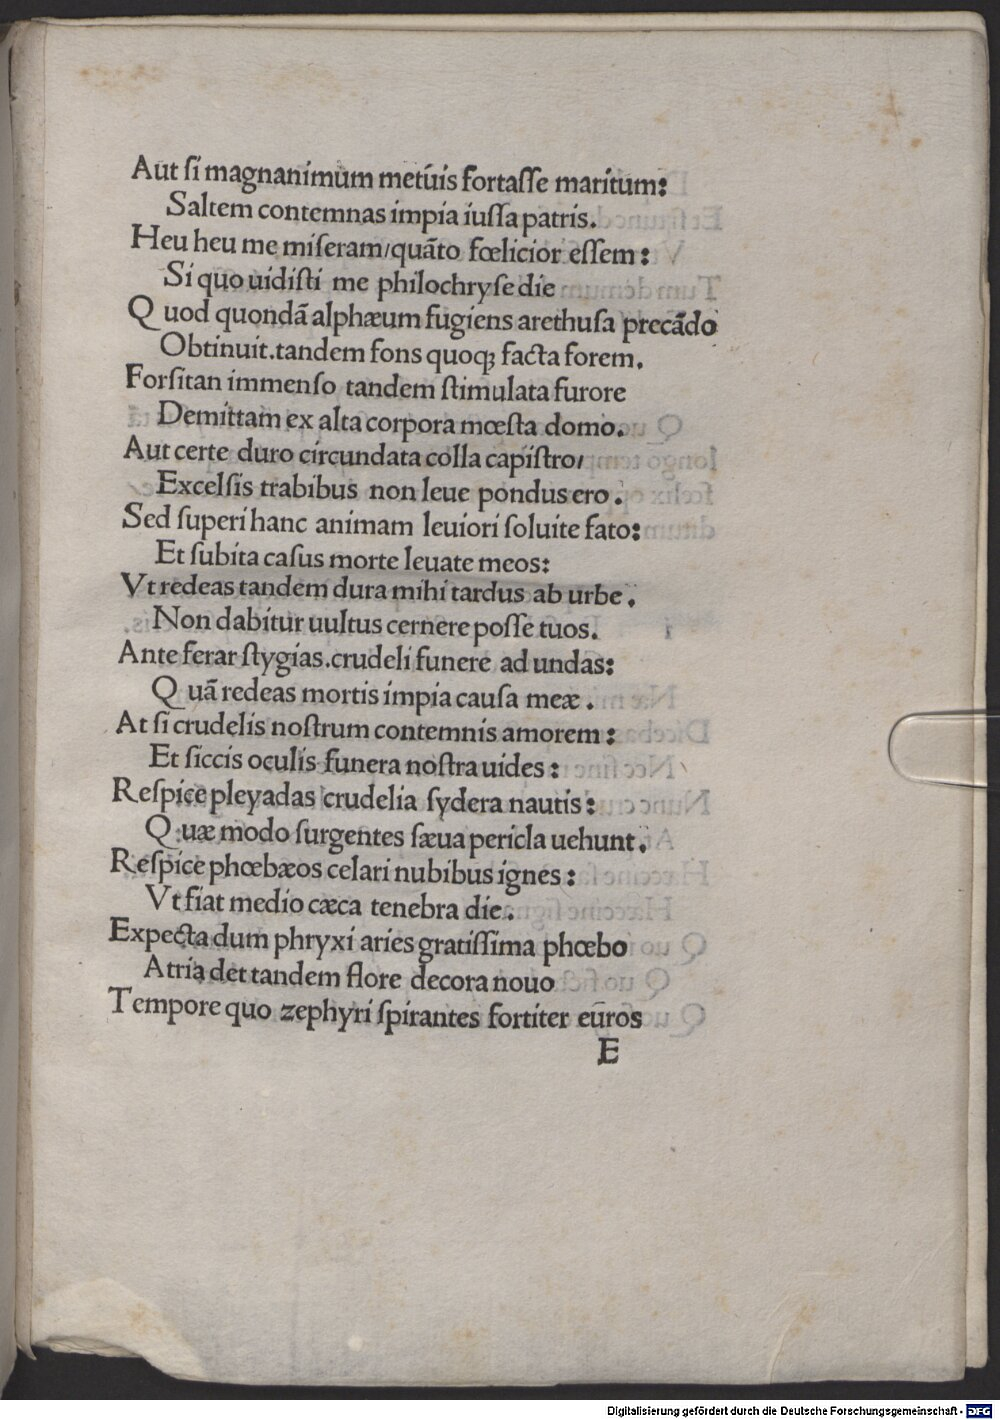 Aut ſi magnanimum metuis fortaſſe maritum:
Saltem contemnas impia iuſſa patris.
Heu heu me miſeram/quãto fœlicior eſſem:
Si quo uidiſti me philochryſe die
Quod quondã alphæum fugiens arethuſa precãdo
Obtinuit.tandem fons quoqꝫ facta forem.
Forſitan immenſo tandem ſtimulata furore
Demittam ex alta corpora mœſta domo.
Aut certe duro circundata colla capiſtro/
Excelſis trabibus non leue pondus ero.
Sed ſuperi hanc animam leuiori ſoluite fato:
Et ſubita caſus morte leuate meos:
Vt redeas tandem dura mihi tardus ab urbe.
Non dabitur uultus cernere poſſe tuos.
Ante ferar ſtygias.crudeli funere ad undas:
Quã redeas mortis impia cauſa meæ.
At ſi crudelis noſtrum contemnis amorem:
Et ſiccis oculis funera noſtra uides:
Reſpice pleyadas crudelia ſydera nautis:
Quæ modo ſurgentes ſæua pericla uehunt.
Reſpice phœbæos celari nubibus ignes:
Vt fiat medio cæca tenebra die.
Expecta dum phryxi aries gratiſſima phœbo
Atria det tandem flore decora nouo
Tempore quo zephyri ſpirantes fortiter eũros
E
Digitalisierung gefördert durch die Deutsche Forschungsgemeinschaft - DFG